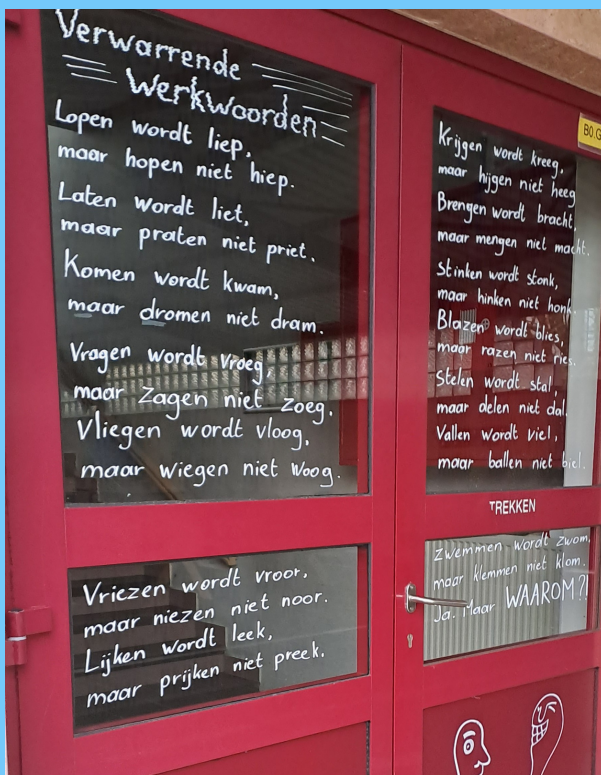 Verwarrende
Werkwoorden
Lopen wordt liep,
maar hopen niet hiep.
Laten wordt liet,
maar praten niet priet.
Komen wordt kwam,
maar dromen niet dram.
Vragen wordt vroeg,
maar zagen niet zoeg.
Vliegen wordt vloog,
maar wiegen niet woog.
Vriezen wordt vroor,
maar niezen niet noor.
Lijken wordt leek,
maar prijken niet preek.
B0.G
Krijgen wordt kreeg,
maar hijgen niet heeg
Brengen wordt bracht,
maar mengen niet macht.
Stinken wordt stonk,
maar hinken niet honk.
Blazen wordt blies,
maar razen niet ries.
Stelen wordt stal,
maar delen niet dal.
Vallen wordt viel,
maar ballen niet biel.
TREKKEN
Zwemmen wordt zwom,
maar klemmen niet klom.
Ja. Maar WAAROM?!